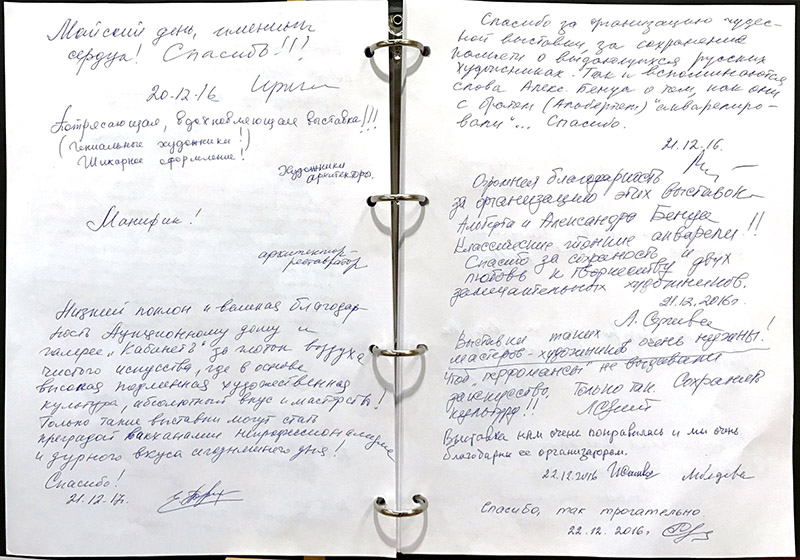 Майский день, именины
сердца! Спасибъ!!!
20.12.16
Потрясающая, вдохновляющая выставка!!!
(Гениальные художники!)
Шикарное оформление!
Художники
архитекторы.
Манифик!
архитектор-
реставратор
Низкий поклон и великая благодар
ность Аукционному дому и
галерее „Кабинетъ" за глоток воздуха
чистого искусства, где в основе
высокая подлинная художественная
культура, абсолютный вкус и мастерство!
Только такие выставки могут стать
преградой вакханалии непрофессионализма
и дурного вкуса сегодняшнего дня!
Спасибо!
21.12.17.
Спасибо за организацию чудес-
ной выставки, за сохранение
памяти о выдающихся русских
художниках. Так и вспоминаются
слова Алекс. Бенуа о том, как они
с братом (Альбертом) "акварелиро-
вали"... Спасибо.
21.12.16.
Огромная благодарность
за организацию этих выставок
Альберта и Александра Бенуа
Классические тонкие акварели!!
Спасибо за сохранность и
любовь к творчеству двух
замечательных художников.
21.12.2016г.
Выставки таких
мастеров-художников очень нужны!
Чтоб „перфомансы" не выдавали
за искусство. Только так. Сохраните
культуру!!
Выставка нам очень понравилась и мы очень
благодарны ее организаторам.
22.12.2016
Спасибо, так трогательно.
22.12.2016г